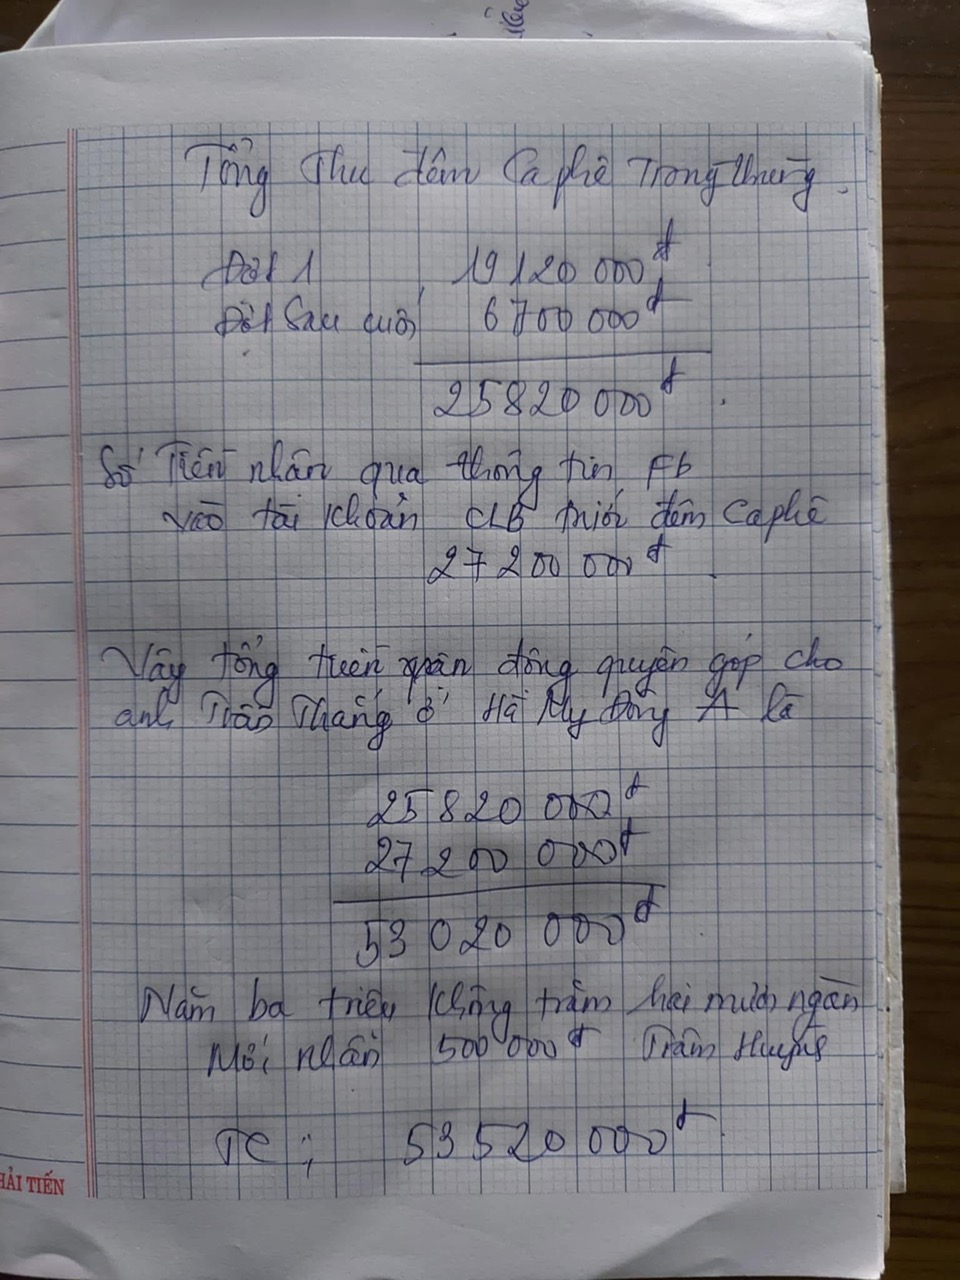 Tổng Thu đêm Ca phê Trong thùng.
Đợt 1 19 120 000đ
Đợt Sau cuối 6 700 000đ
25 820 000đ
Số Tiền nhận qua thông tin Fb
vào tài khoản CLB trước đêm Ca phê
27 200 000đ
Vậy tổng tiền quân đông quyên góp cho
anh Trần Thắng ở Hà My Đông A là
25 820 000đ
27 200 000đ
53 020 000đ
Năm ba triệu không trăm hai mươi ngàn.
Mới nhận 500 000đ Trầm
TC: 53 520 000đ
HẢI TIẾN